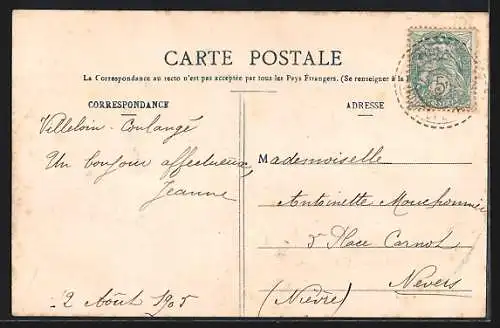 CARTE POSTALE
La Correspondance au recto n'est pas acceptée par tous les Pays Étrangers. (Se renseigner à la
CORRESPONDANCE
Villeloin-Coulangé
Un bonjour affectueux,
Jeanne
2 Août 1905
ADRESSE
Mademoiselle
Antoinette
5 Place Carnot
Nevers
(Nièvre)
5